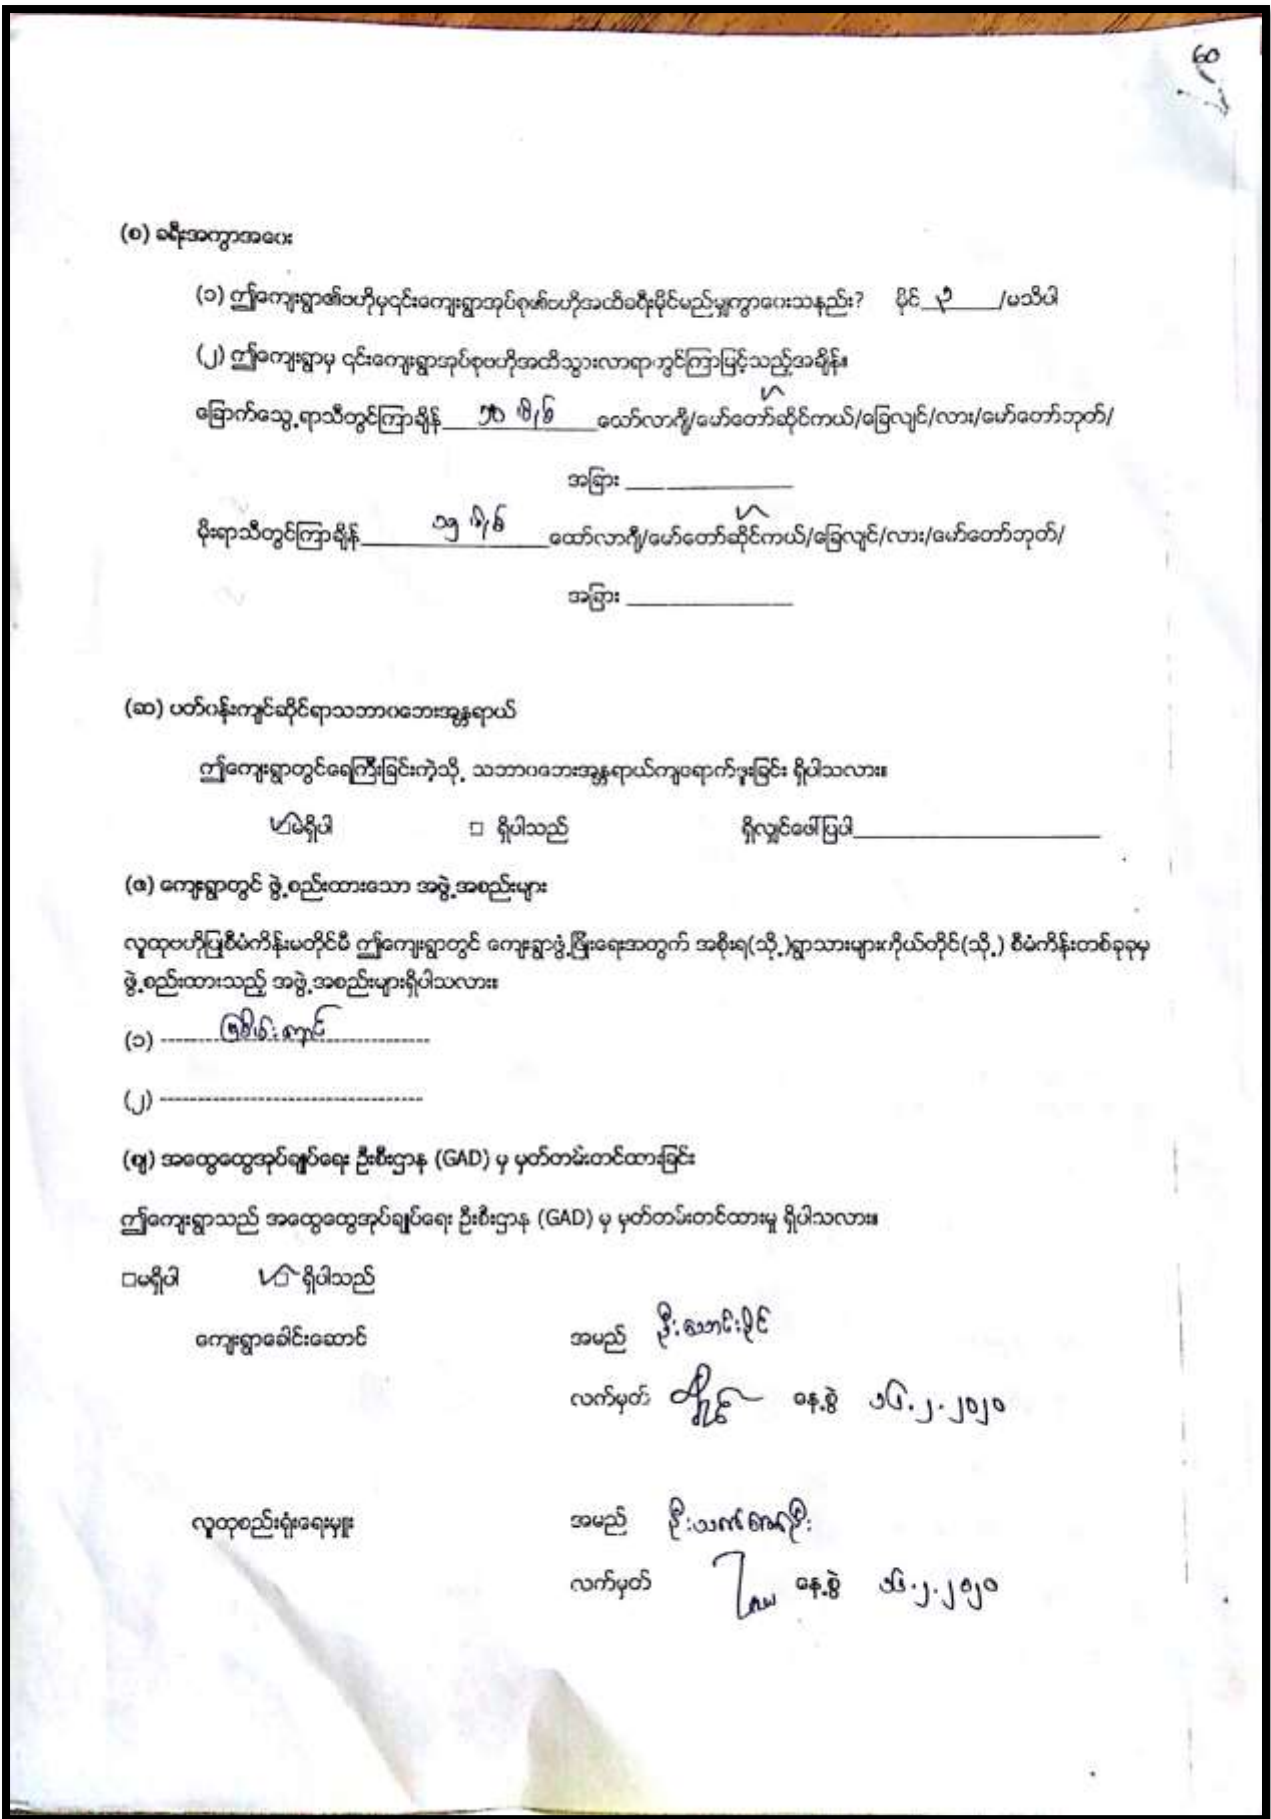 (စ) ခရီးအကွာအဝေး
(၁) ဤကျေးရွာ၏ဗဟိုမှ၎င်းကျေးရွာအုပ်စု၏ဗဟိုအထိခရီးမိုင်မည်မျှကွာဝေးသနည်း? မိုင် ၃ /မသိပါ
(၂) ဤကျေးရွာမှ ၎င်းကျေးရွာအုပ်စုဗဟိုအထိသွားလာရာတွင်ကြာမြင့်သည့်အချိန်။
ခြောက်သွေ့ရာသီတွင်ကြာချိန် ၁၀ မိနစ် ထော်လာဂျီ/မော်တော်ဆိုင်ကယ်/ခြေလျင်/လား/မော်တော်ဘုတ်/
အခြား
မိုးရာသီတွင်ကြာချိန် ၁၅ မိနစ် ထော်လာဂျီ/မော်တော်ဆိုင်ကယ်/ခြေလျင်/လား/မော်တော်ဘုတ်/
အခြား
(ဆ) ပတ်ဝန်းကျင်ဆိုင်ရာသဘာဝဘေးအန္တရာယ်
ဤကျေးရွာတွင်ရေကြီးခြင်းကဲ့သို့ သဘာဝဘေးအန္တရာယ်ကျရောက်ဖူးခြင်း ရှိပါသလား။
☑မရှိပါ □ ရှိပါသည် ရှိလျှင်ဖော်ပြပါ
(ဇ) ကျေးရွာတွင် ဖွဲ့စည်းထားသော အဖွဲ့အစည်းများ
လူထုဗဟိုပြုစီမံကိန်းမတိုင်မီ ဤကျေးရွာတွင် ကျေးရွာဖွံ့ဖြိုးရေးအတွက် အစိုးရ(သို့)ရွာသားများကိုယ်တိုင်(သို့) စီမံကိန်းတစ်ခုခုမှ
ဖွဲ့စည်းထားသည့် အဖွဲ့အစည်းများရှိပါသလား။
(၁) မြစိမ်းရောင်
(၂)
(ဈ) အထွေထွေအုပ်ချုပ်ရေး ဦးစီးဌာန (GAD) မှ မှတ်တမ်းတင်ထားခြင်း
ဤကျေးရွာသည် အထွေထွေအုပ်ချုပ်ရေး ဦးစီးဌာန (GAD) မှ မှတ်တမ်းတင်ထားမှု ရှိပါသလား။
□မရှိပါ ☑ ရှိပါသည်
ကျေးရွာခေါင်းဆောင် အမည် ဦးသောင်းပိုင်
လက်မှတ် နေ့စွဲ ၁၆.၂.၂၀၂၀
လူထုစည်းရုံးရေးမှူး အမည်
လက်မှတ် နေ့စွဲ ၁၆.၂.၂၀၂၀